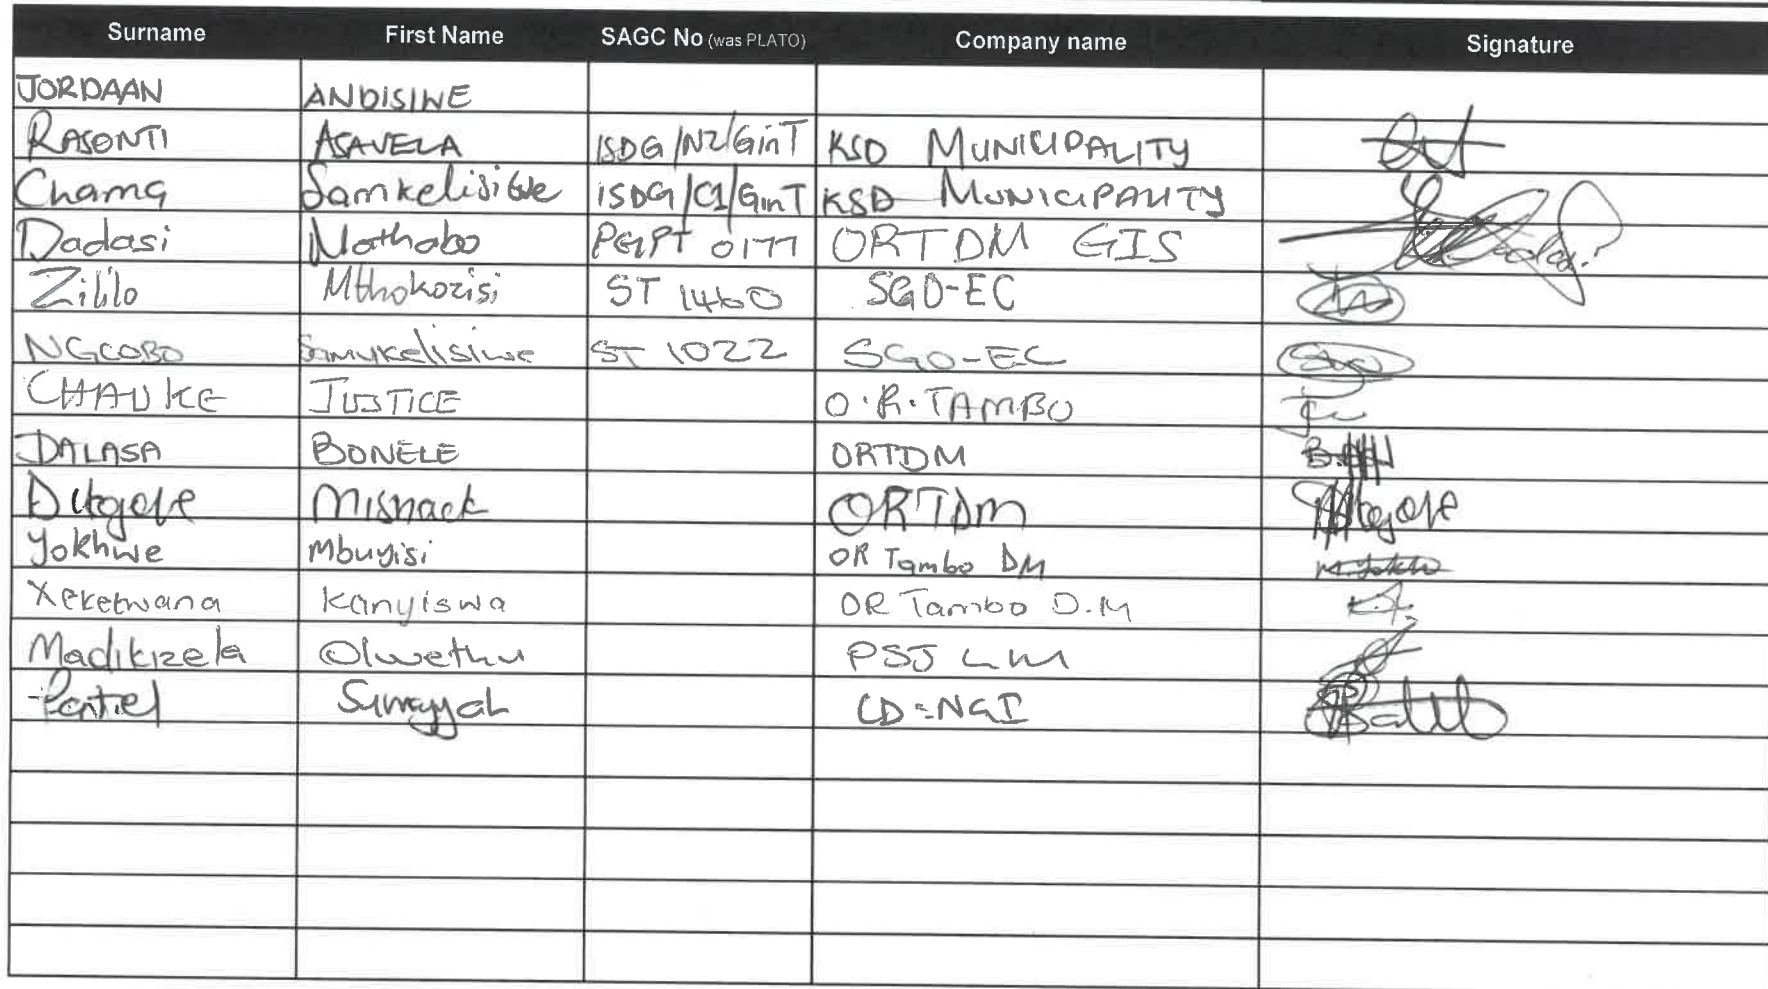 Surname First Name SAGC No (was PLATO) Company name Signature
JORDAAN ANDISIWE
RASONTI ASAVELA ISDG/N2/GinT KSD MUNICIPALITY
Chama Samkelisiwe ISDG/C1/GinT KSD MUNICIPALITY
Dadasi Nathabo PGPT 0177 ORTDM GIS
Zililo Mthokozisi ST 1460 SGO-EC
NGCOBO Samukelisiwe ST 1022 SGO-EC
CHAUKE JUSTICE O.R. TAMBO
DALASA BONELE ORTDM
Mishack ORTDM
Yokhwe Mbuyisi OR Tambo DM
Xeketwana Kanyiswa OR Tambo D.M
Madikizela Olwethu PSJ LM
Sumayyah CD:NGI